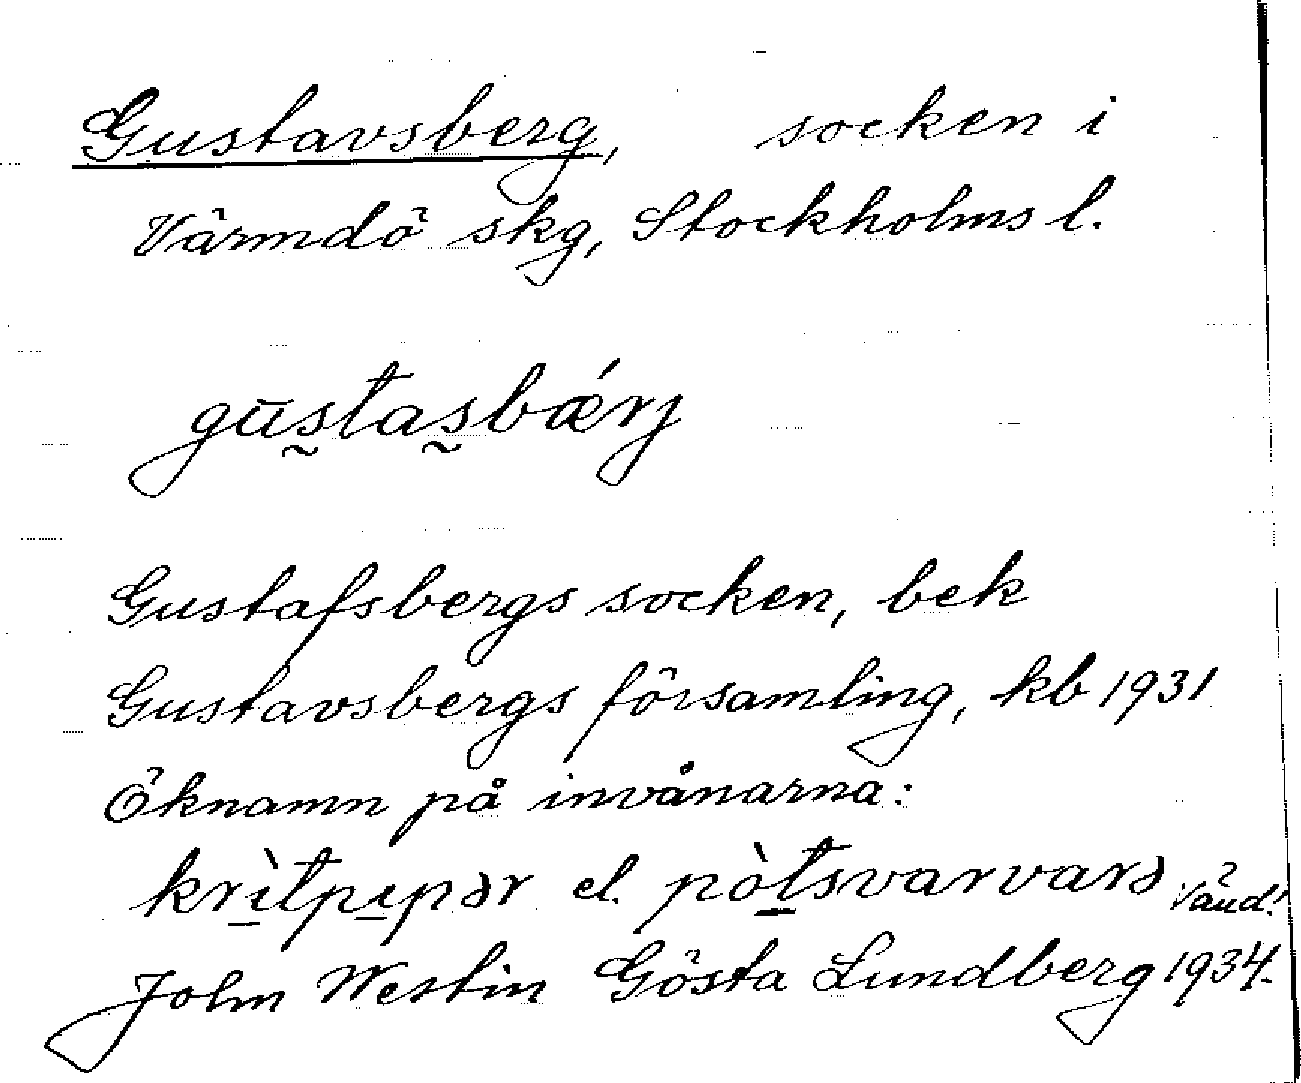 Gustavsberg, socken i
Värmdö skg, Stockholms l.
gūs̰tas̰bǽrj
Gustafsbergs socken, bek
Gustavsbergs församling, kb 1931
Öknamn på invånarna:
krı̱̀tpı̱pər el. pòṯsvarvarə Vänd!
John Westin Gösta Lundberg 1934.